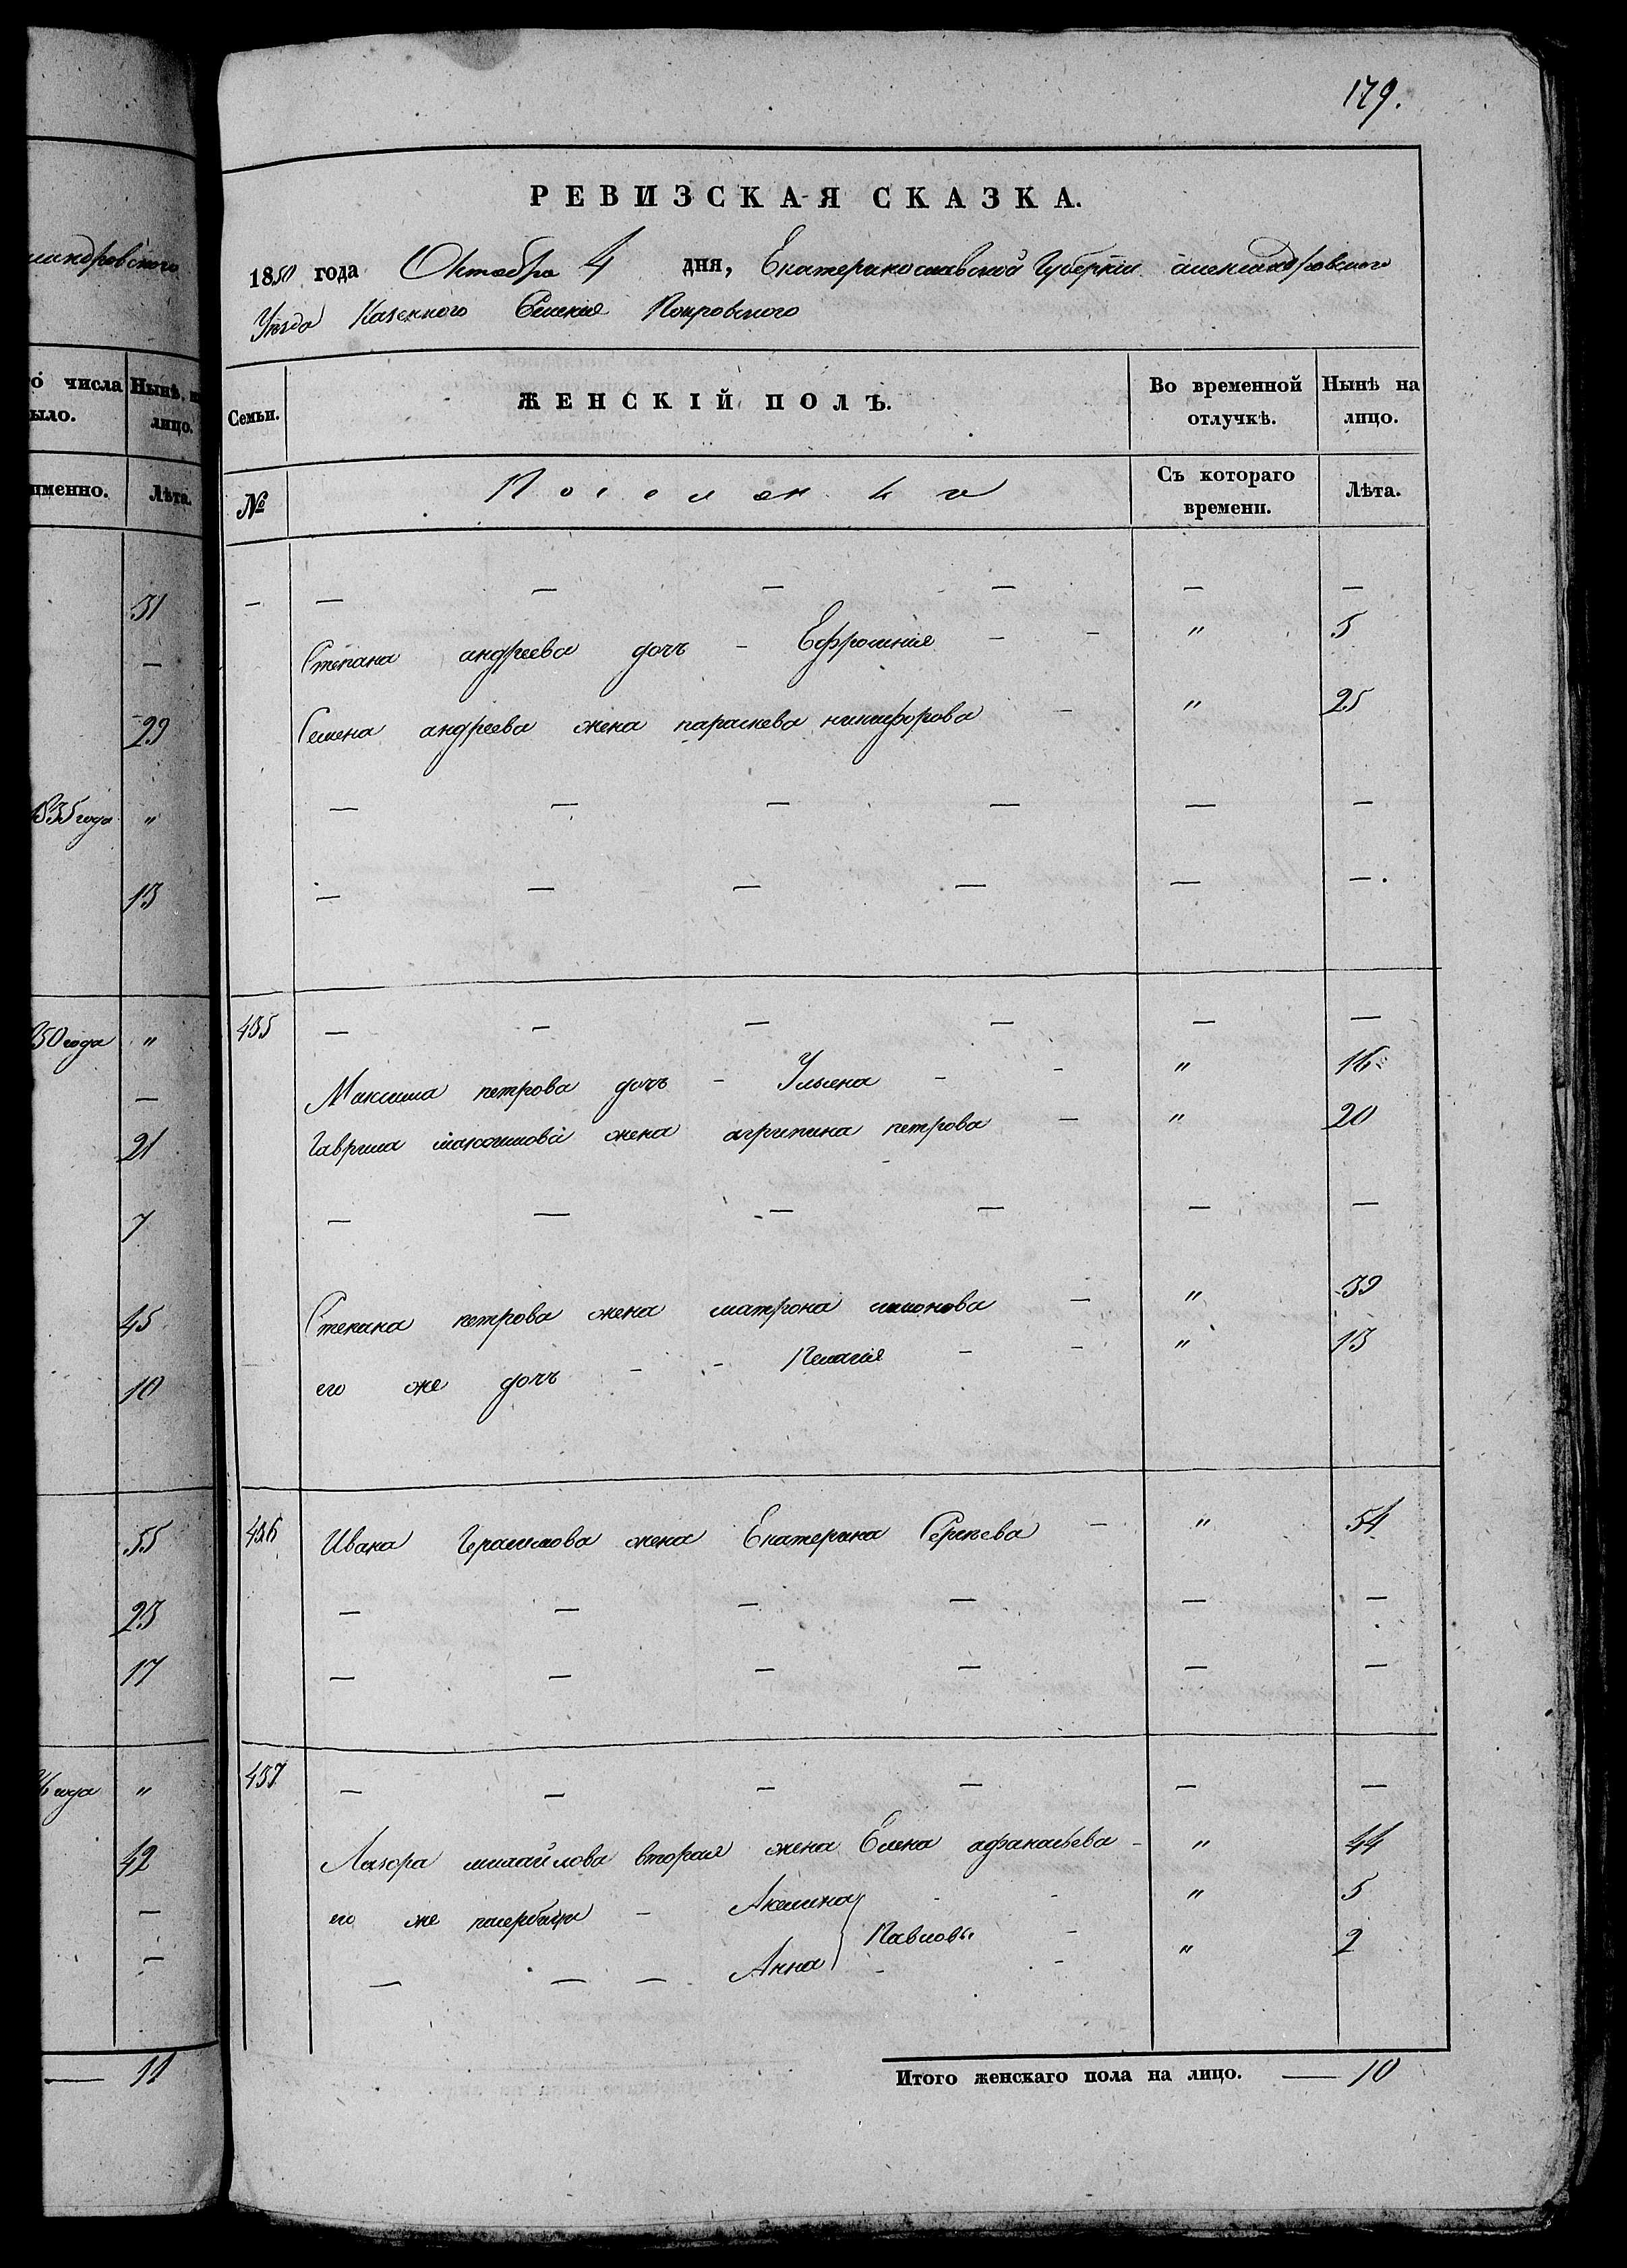 179.
мандровского
о числа Нынѣ н
ыло. лицо.
именно. Лѣта.
31
—
29
1835 года "
13
50 года "
—
21
7
45
10
55
23
17
6 года "
42
—
—
— 11
РЕВИЗСКАЯ СКАЗКА.
1850 года Октября 4 дня, Екатеринославской Губернии александровского
Уезда Казенного Селения Покровского
Семьи. ЖЕНСКІЙ ПОЛЪ. Во временной отлучкѣ. Нынѣ на лицо.
№ Поселянки Съ котораго времени. Лѣта.
— — — — — — —
Степана андреева дочь - Ефросиния - - " 5
Семена андреева жена параскева никифорова - " 25
— — — — — —
— — — — — —
435 — — — — — —
Максима петрова дочь - Ульяна - - " 16
Гаврила максимова жена агрипина петрова - " 20
— — — — — —
Степана петрова жена матрона симонова - " 39
его же дочь - - Пелагия - - " 13
436 Ивана Герасимова жена Екатерина Сергеева - " 54
— — — — — —
— — — — — —
437 — — — — — —
Лазора михайлова вторая жена Елена афанасьева - " 44
его же пасербицы - Акилина - - " 5
Павловы -
— — — Анна - - " 2
Итого женскаго пола на лицо. — 10